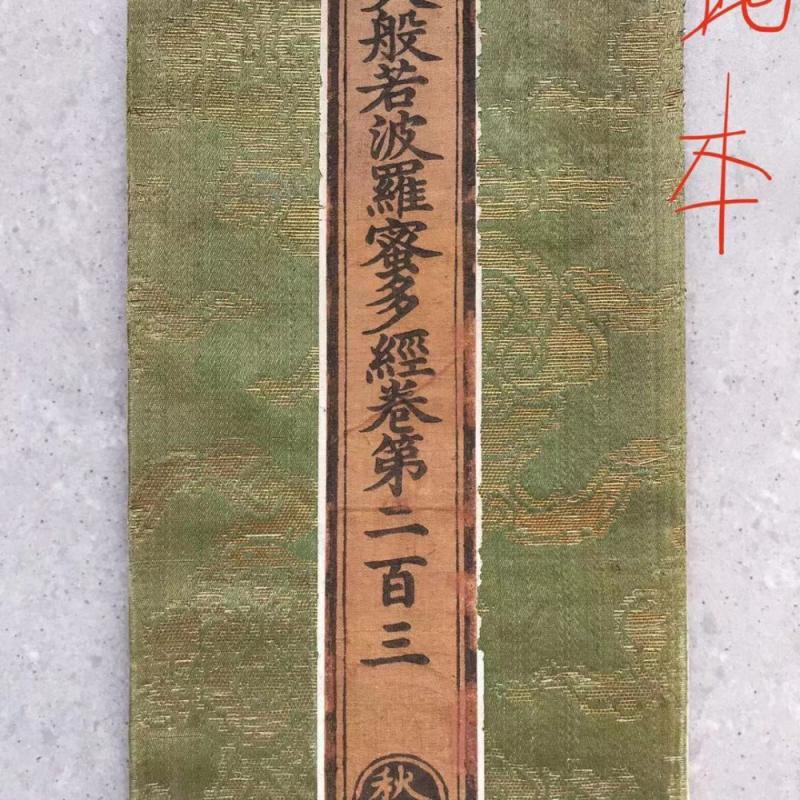 大般若波羅蜜多經卷第二百三
秋
本